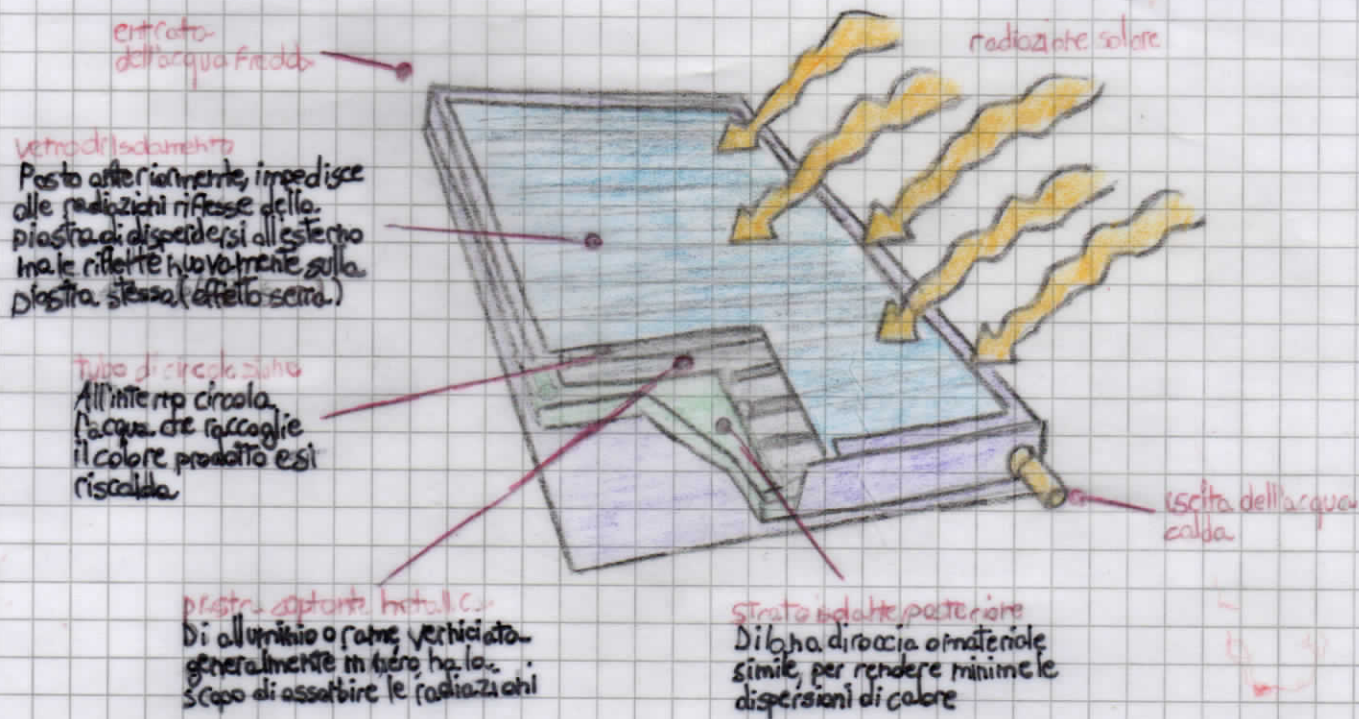 entrata
dell'acqua fredda
radiazione solare
vetro di isolamento
Posto anteriormente, impedisce
alle radiazioni riflesse della
piastra di disperdersi all'esterno
ma le riflette nuovamente sulla
piastra stessa (effetto serra)
tubo di circolazione
All'interno circola
l'acqua che raccoglie
il calore prodotto e si
riscalda
uscita dell'acqua
calda
piastra captante metallica
Di alluminio o rame, verniciata
generalmente in nero ha lo
scopo di assorbire le radiazioni
strato isolante posteriore
Di lana di roccia o materiale
simile, per rendere minime le
dispersioni di calore